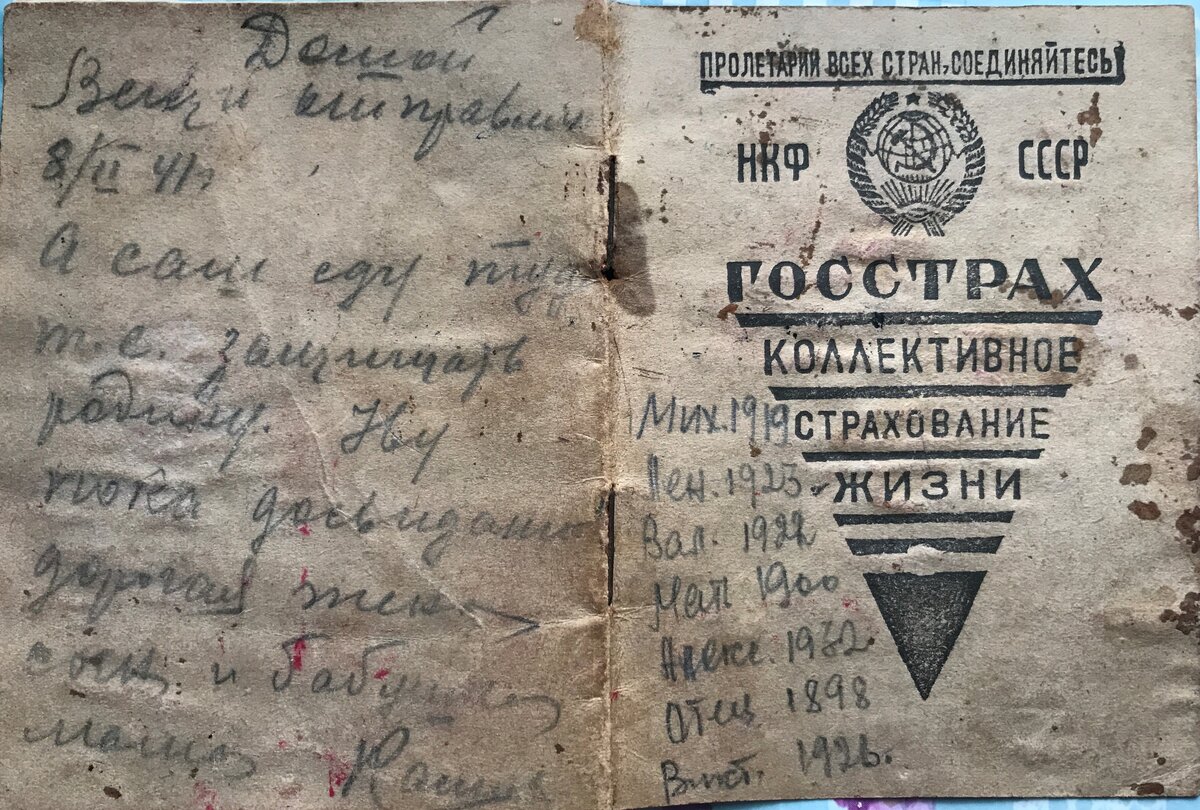 Домой
Вещи отправил
8/II 41г
А сам еду туда
т.е. защищать
родину. Ну
пока досвидание
дорогая жена
сын и бабушка
мамаша
ПРОЛЕТАРИИ ВСЕХ СТРАН, СОЕДИНЯЙТЕСЬ!
НКФ СССР
ГОССТРАХ
КОЛЛЕКТИВНОЕ
СТРАХОВАНИЕ
ЖИЗНИ
Мих. 1919
Лен. 1923.
Вал. 1922
Мать 1900
Алекс. 1932.
Отец 1898
Викт. 1926.